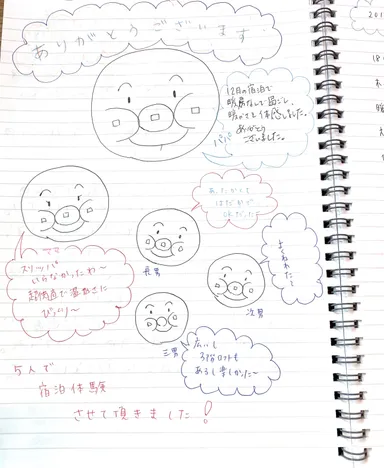 ありがとうございます
12月の宿泊で
暖房なしで過ごし
暖かさを体感しました。
ありがとう
ございました。
パパ
あったかくて
はだしで
OKだった
ママ
スリッパ
いらなかったわ〜
超微風で温かさに
びっくり〜
長男
よくねれた〜
次男
三男
広いし
3階ロフトも
あるし楽しかった〜
5人で
宿泊体験
させて頂きました!
201